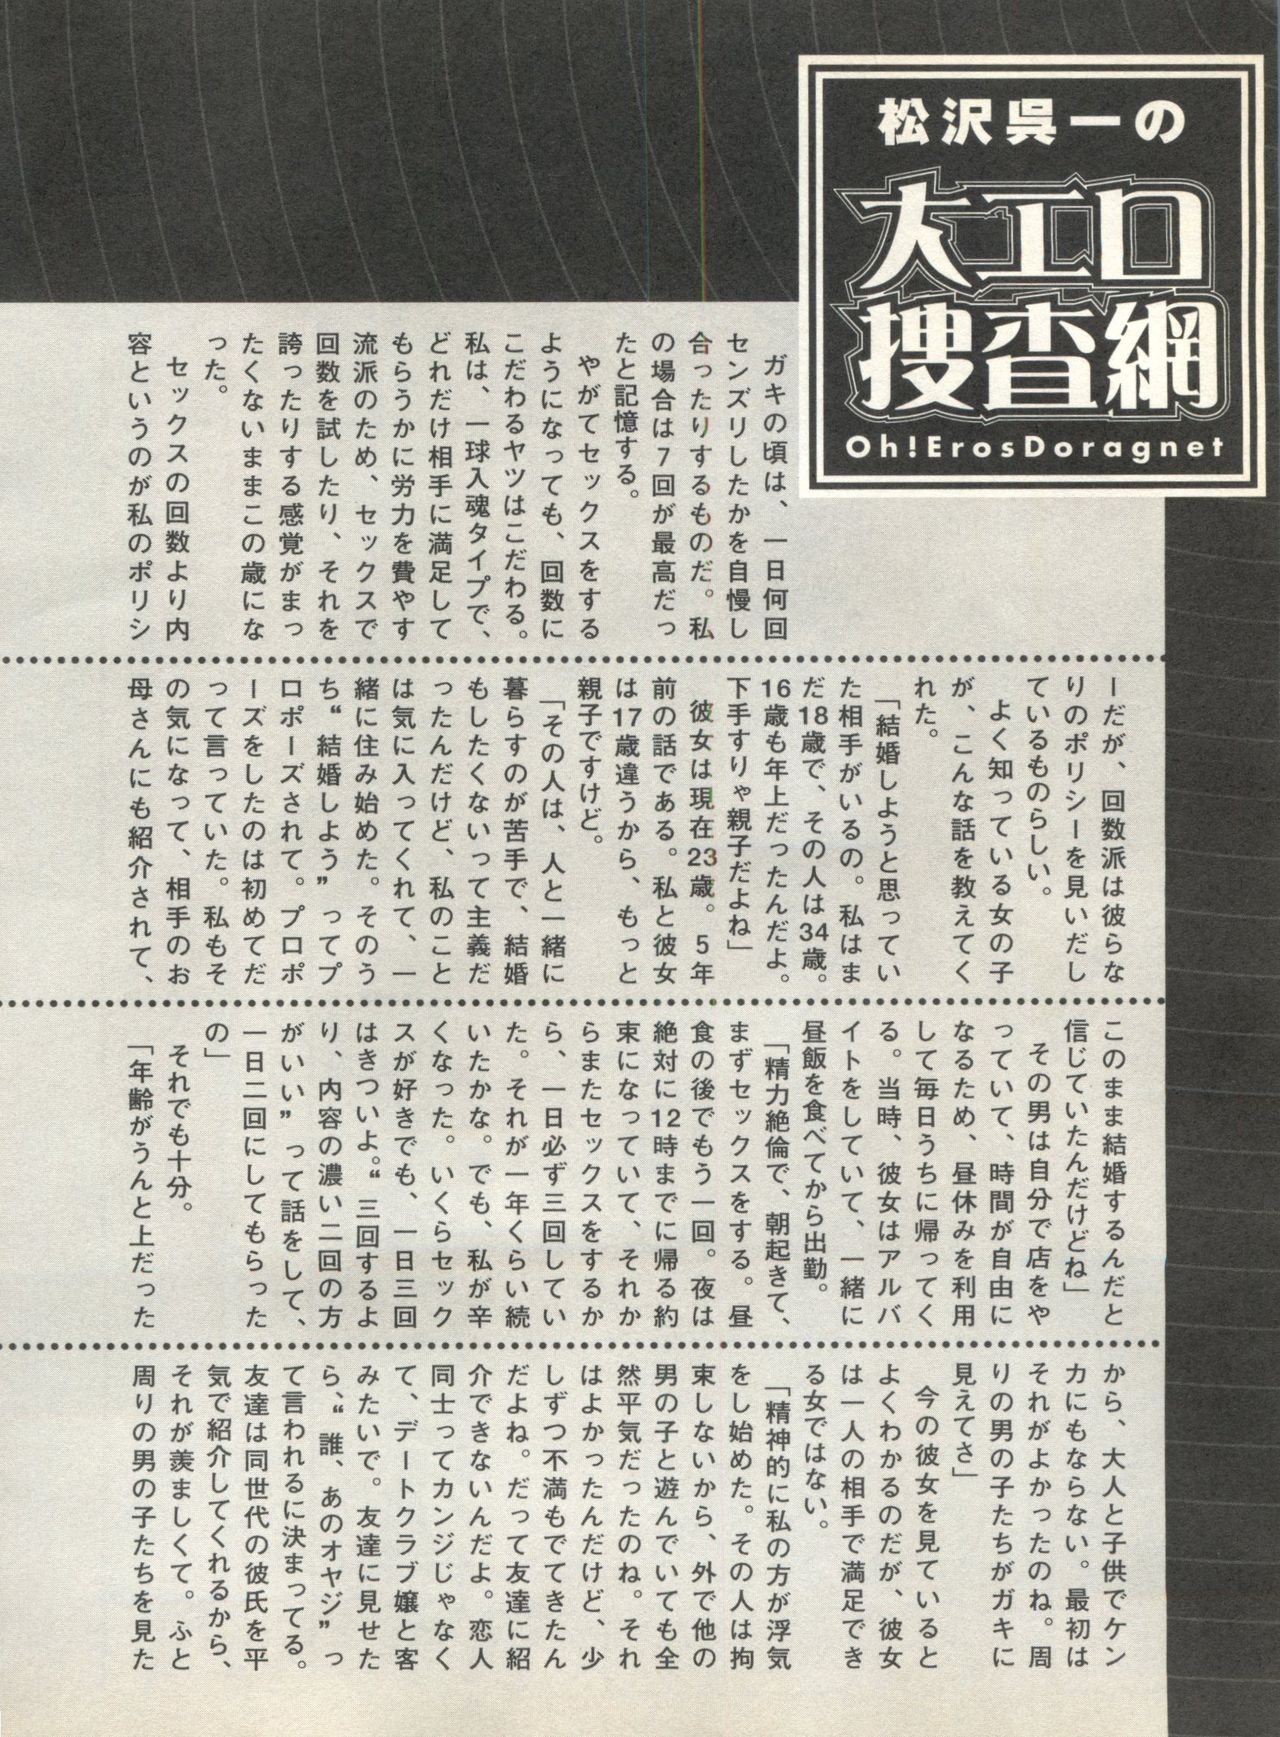 松沢呉一の
大エロ
捜査網
Oh!ErosDoragnet
ガキの頃は、一日何回
センズリしたかを自慢し
合ったりするものだ。私
の場合は7回が最高だっ
たと記憶する。
やがてセックスをする
ようになっても、回数に
こだわるヤツはこだわる。
私は、一球入魂タイプで、
どれだけ相手に満足して
もらうかに労力を費やす
流派のため、セックスで
回数を試したり、それを
誇ったりする感覚がまっ
たくないままこの歳にな
った。
セックスの回数より内
容というのが私のポリシ
ーだが、回数派は彼らな
りのポリシーを見いだし
ているものらしい。
よく知っている女の子
が、こんな話を教えてく
れた。
「結婚しようと思ってい
た相手がいるの。私はま
だ18歳で、その人は34歳。
16歳も年上だったんだよ。
下手すりゃ親子だよね」
彼女は現在23歳。5年
前の話である。私と彼女
は17歳違うから、もっと
親子ですけど。
「その人は、人と一緒に
暮らすのが苦手で、結婚
もしたくないって主義だ
ったんだけど、私のこと
は気に入ってくれて、一
緒に住み始めた。そのう
ち“結婚しよう”ってプ
ロポーズされて。プロポ
ーズをしたのは初めてだ
って言っていた。私もそ
の気になって、相手のお
母さんにも紹介されて、
このまま結婚するんだと
信じていたんだけどね」
その男は自分で店をや
っていて、時間が自由に
なるため、昼休みを利用
して毎日うちに帰ってく
る。当時、彼女はアルバ
イトをしていて、一緒に
昼飯を食べてから出勤。
「精力絶倫で、朝起きて、
まずセックスをする。昼
食の後でもう一回。夜は
絶対に12時までに帰る約
束になっていて、それか
らまたセックスをするか
ら、一日必ず三回してい
た。それが一年くらい続
いたかな。でも、私が辛
くなった。いくらセック
スが好きでも、一日三回
はきついよ。“三回するよ
り、内容の濃い二回の方
がいい”って話をして、
一日二回にしてもらった
の」
それでも十分。
「年齢がうんと上だった
から、大人と子供でケン
カにもならない。最初は
それがよかったのね。周
りの男の子たちがガキに
見えてさ」
今の彼女を見ていると
よくわかるのだが、彼女
は一人の相手で満足でき
る女ではない。
「精神的に私の方が浮気
をし始めた。その人は拘
束しないから、外で他の
男の子と遊んでいても全
然平気だったのね。それ
はよかったんだけど、少
しずつ不満もでてきたん
だよね。だって友達に紹
介できないんだよ。恋人
同士ってカンジじゃなく
て、デートクラブ嬢と客
みたいで。友達に見せた
ら、“誰、あのオヤジ”っ
て言われるに決まってる。
友達は同世代の彼氏を平
気で紹介してくれるから、
それが羨ましくて。ふと
周りの男の子たちを見た